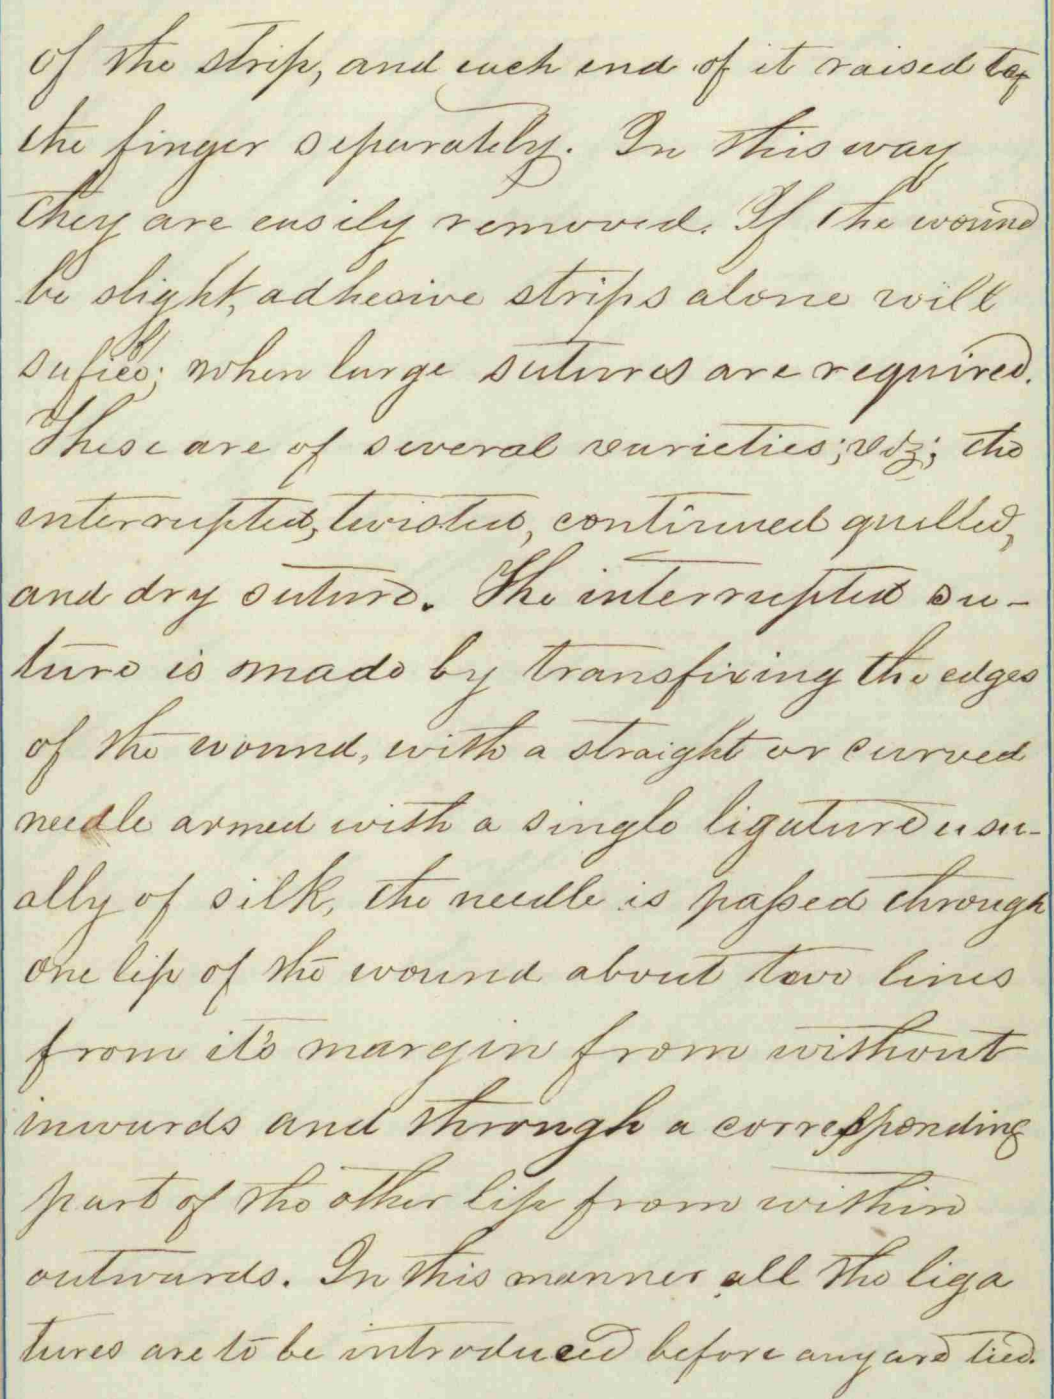 of the strip, and each end of it raised to
the finger separately. In this way
they are easily removed. If the wound
be slight, adhesive strips alone will
suffice; when large sutures are required.
These are of several varieties; viz; the
interrupted, twisted, continued quilled,
and dry suture. The interrupted su-
ture is made by transfixing the edges
of the wound, with a straight or curved
needle armed with a single ligature usu-
ally of silk, the needle is passed through
one lip of the wound about two lines
from it's margin from without
inwards and through a corresponding
part of the other lip from within
outwards. In this manner all the liga
tures are to be introduced before any are tied.